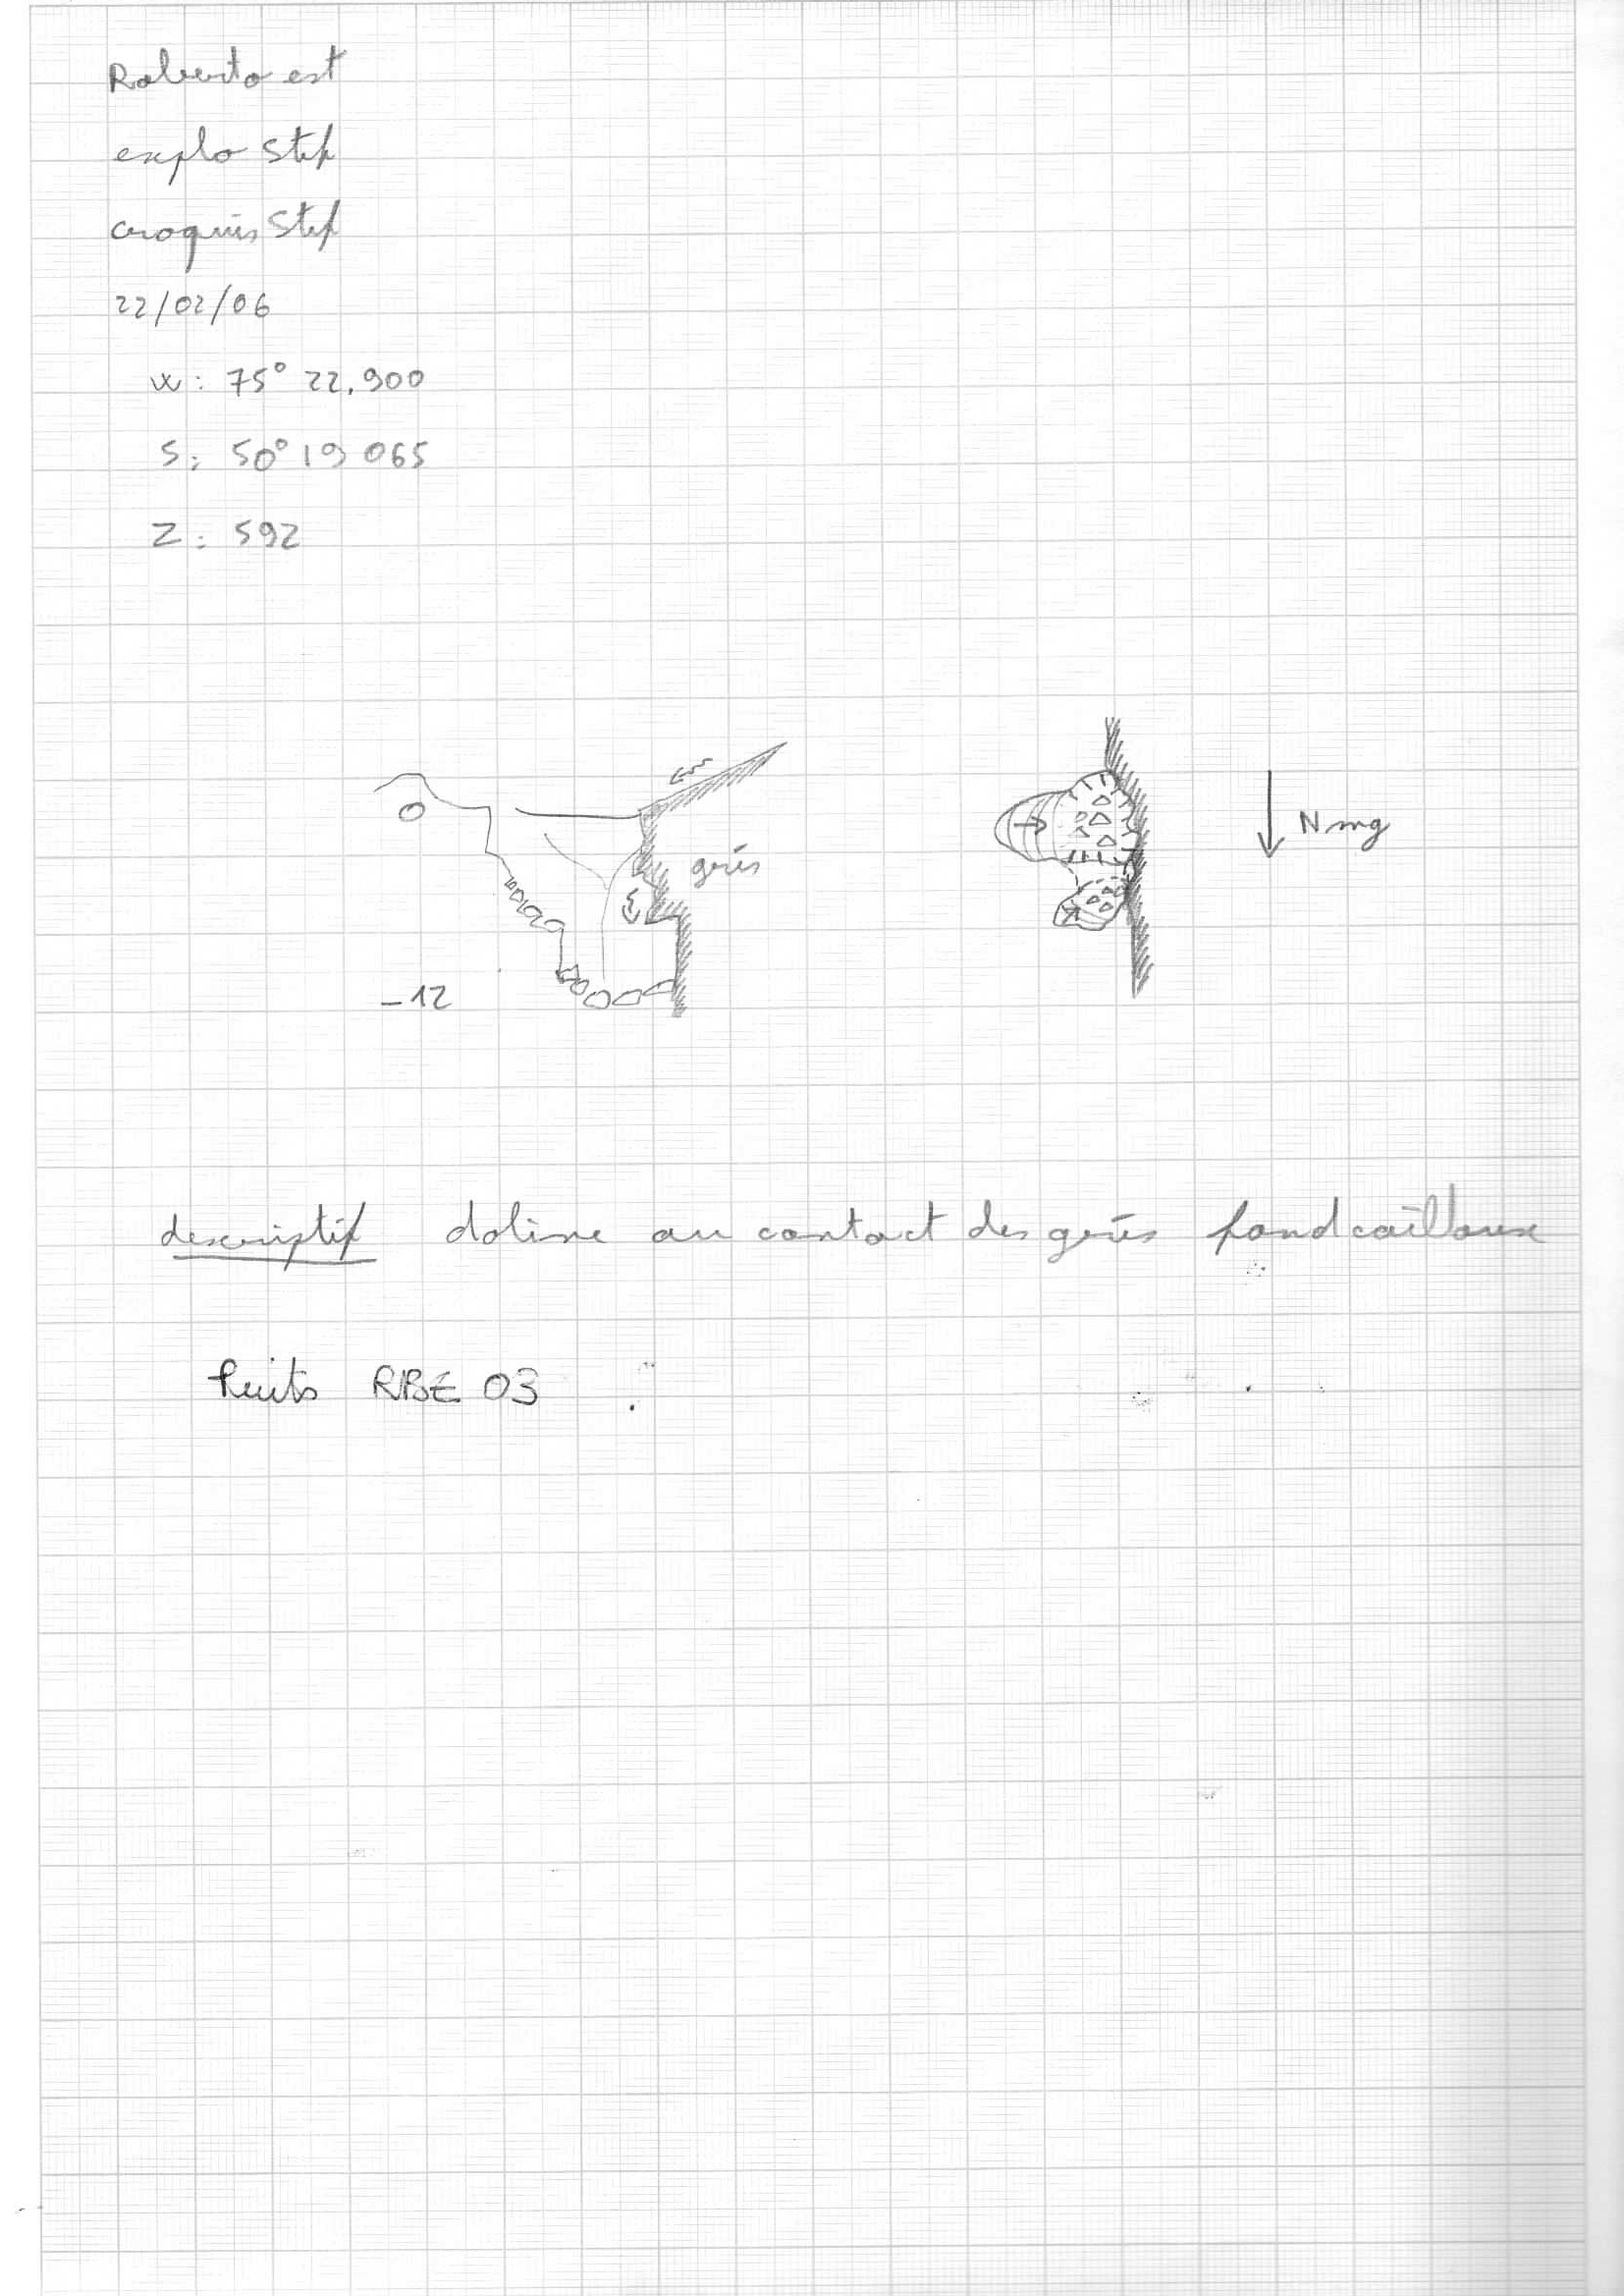 Roberto est
explo Stef
croquis Stef
22/02/06
W: 75° 22,900
S: 50° 19 065
Z: 592
0
grés
N mg
-12
descriptif doline au contact des grés fond cailloux
Puits RBE 03